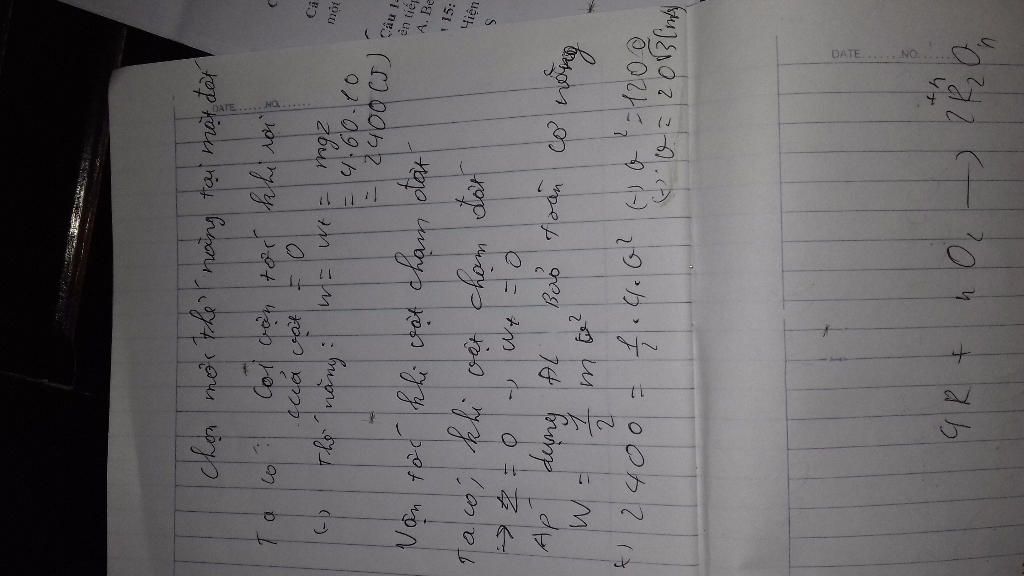 Chọn mốc thế năng tại mặt đất
DATE .......NO. ......
Ta có: Gọi vận tốc khi rơi
của vật = 0
(-) Thế năng: W = Wt = mgz
= 4.60.10
= 2400 (J)
Vận tốc khi vật chạm đất
Ta có, khi vật chạm đất
→ z = 0 → Wt = 0
Áp dụng ĐL Bảo toàn cơ năng
W = 1/2 m v²
2400 = 1/2 . 4 . v² (-) v² = 1200
(-) v = 20√3 (m/s)
DATE .......NO. ......
4R + nO₂ —) 2R₂⁺ⁿOₙ
Câu 1
A. Be
15:
S